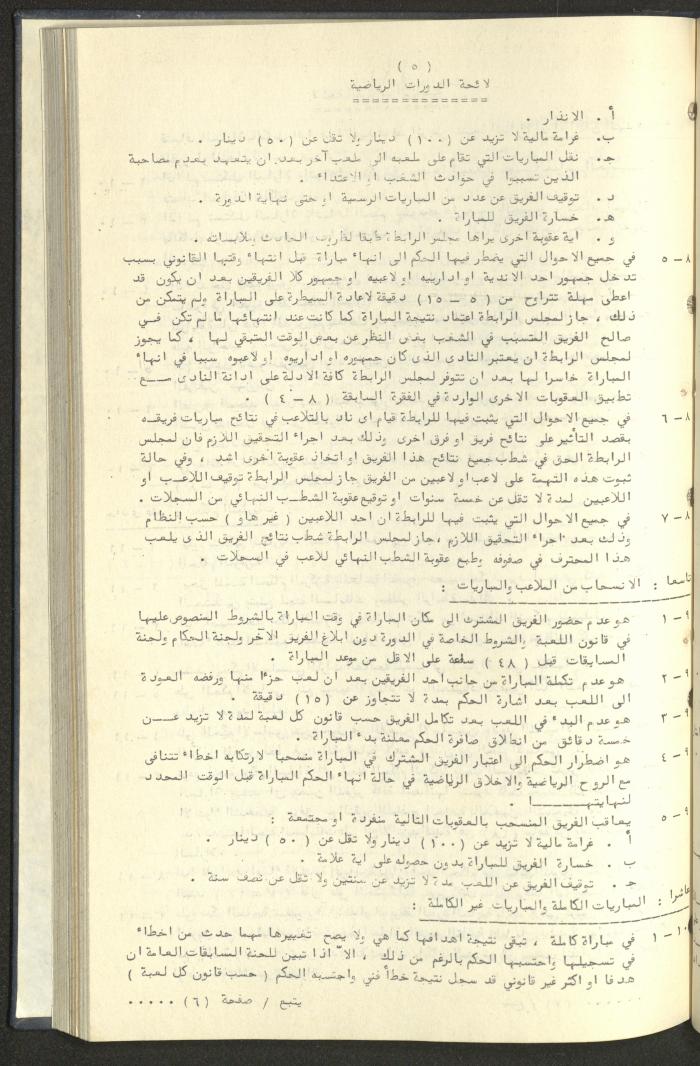 ( ٥ )
لائحة الدورات الرياضية
==============
أ . الانذار .
ب. غرامة مالية لا تزيد عن (١٠٠) دينار ولا تقل عن (٥٠) دينار .
جـ. نقل المباريات التي تقام على ملعبه الى ملعب آخر بعد ان يتعهد بعدم مصاحبة
الذين تسببوا في حوادث الشغب او الاعتداء .
د . توقيف الفريق عن عدد من المباريات الرسمية او حتى نهاية الدورة .
هـ. خسارة الفريق للمباراة .
و . اية عقوبة اخرى يراها مجلس الرابطة طبقا لظروف الحادث وملابساته .
٨ – ٥ في جميع الاحوال التي يضطر فيها الحكم الى انهاء مباراة قبل انتهاء وقتها القانوني بسبب
تدخل جمهور احد الاندية او ادارييه او لاعبيه او جمهور كلا الفريقين بعد ان يكون قد
اعطى مهلة تتراوح من (٥ – ١٥) دقيقة لاعادة السيطرة على المباراة ولم يتمكن من
ذلك ، جاز لمجلس الرابطة اعتماد نتيجة المباراة كما كانت عند انتهائها ما لم تكن فــي
صالح الفريق المتسبب في الشغب بغض النظر عن بعض الوقت المتبقي لها ، كما يجوز
لمجلس الرابطة ان يعتبر النادى الذى كان جمهوره او اداريوه او لاعبوه سببا في انهاء
المباراة خاسرا لها بعد ان تتوفر لمجلس الرابطة كافة الادلة على ادانة النادى مـــع
تطبيق العقوبات الاخرى الواردة في الفقرة السابقة ( ٨ – ٤ ) .
٨ – ٦ في جميع الاحوال التي يثبت فيها للرابطة قيام اى ناد بالتلاعب في نتائج مباريات فريقــه
بقصد التأثير على نتائج فريق او فرق اخرى وذلك بعد اجراء التحقيق اللازم فان لمجلس
الرابطة الحق في شطب جميع نتائج هذا الفريق او اتخاذ عقوبة اخرى اشد ، وفي حالة
ثبوت هذه التهمة على لاعب او لاعبين من الفريق جاز لمجلس الرابطة توقيف اللاعــب او
اللاعبين لمدة لا تقل عن خمسة سنوات او توقيع عقوبة الشطــب النهائي من السجلات .
٨ – ٧ في جميع الاحوال التي يثبت فيها للرابطة ان احد اللاعبين ( غير هاو ) حسب النظام
وذلك بعد اجراء التحقيق اللازم ، جاز لمجلس الرابطة شطب نتائج الفريق الذى يلعب
هذا المحترف في صفوفه وطبع عقوبة الشطب النهائي للاعب في السجلات .
تاسعا : الانسحاب من الملاعب والمباريات :
٩ – ١ هو عدم حضور الفريق المشترك الى مكان المباراة في وقت المباراة بالشروط المنصوص عليها
في قانون اللعبة والشروط الخاصة في الدورة دون ابلاغ الفريق الآخر ولجنة الحكام ولجنة
المسابقات قبل ( ٤٨ ) ساعة على الاقل من موعد المباراة .
٩ – ٢ هو عدم تكملة المباراة من جانب احد الفريقين بعد ان لعب جزءا منها ورفضه العودة
الى اللعب بعد اشارة الحكم بمدة لا تتجاوز عن (١٥) دقيقة .
٩ – ٣ هو عدم البدء في اللعب بعد تكامل الفريق حسب قانون كل لعبة لمدة لا تزيد عــــن
خمسة دقائق من انطلاق صافرة الحكم معلنة بدء المباراة .
٩ – ٤ هو اضطرار الحكم الى اعتبار الفريق المشترك في المباراة منسحبا لارتكابه اخطاء تتنافى
مع الروح الرياضية والاخلاق الرياضية في حالة انهاء الحكم المباراة قبل الوقت المحدد
لنهايتهــــــا .
٩ – ٥ يعاقب الفريق المنسحب بالعقوبات التالية منفردة او مجتمعة :
أ . غرامة مالية لا تزيد عن (١٠٠) دينار ولا تقل عن ( ٥٠ ) دينار .
ب . خسارة الفريق للمباراة بدون حصوله على اية علامة .
جـ . توقيف الفريق عن اللعب مدة لا تزيد عن سنتين ولا تقل عن نصف سنة .
عاشرا : المباريات الكاملة والمباريات غير الكاملة :
١٠ – ١ في مباراة كاملة ، تبقى نتيجة اهدافها كما هي ولا يصح تغييرها مهما حدث من اخطاء
في تسجيلها واحتسبها الحكم بالرغم من ذلك ، الا اذا تبين للجنة المسابقات العامة ان
هدفا او اكثر غير قانوني قد سجل نتيجة خطأ فني واحتسبه الحكم ( حسب قانون كل لعبة )
يتبع / صفحة (٦) .....